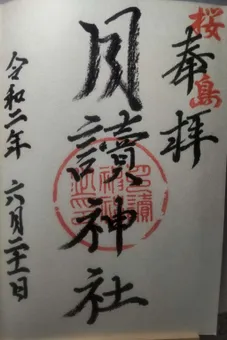 桜島
奉拝
月讀神社
令和二年 六月二十一日